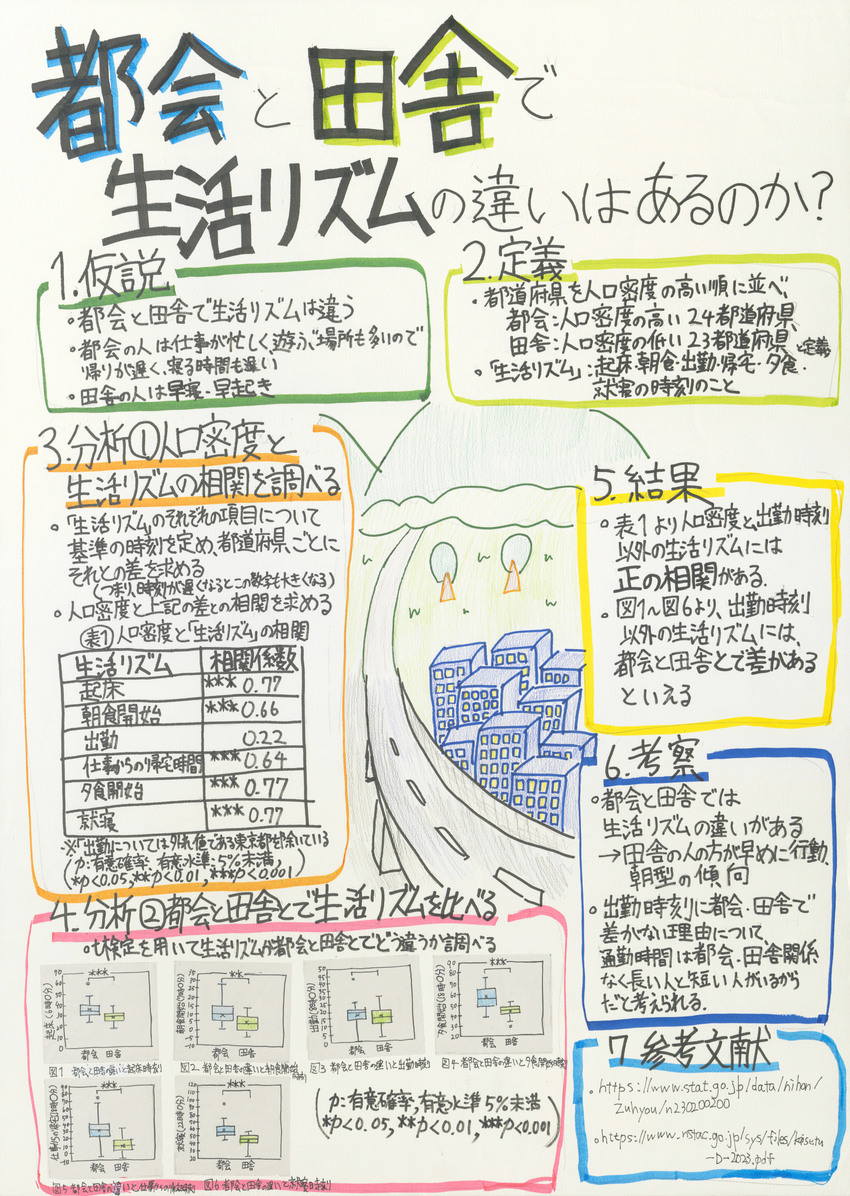 都会と田舎で
生活リズムの違いはあるのか?
1.仮説
・都会と田舎で生活リズムは違う
・都会の人は仕事が忙しく、遊ぶ場所も多いので
帰りが遅く、寝る時間も遅い
・田舎の人は早寝・早起き
2.定義
・都道府県を人口密度の高い順に並べ、
都会:人口密度の高い24都道府県、
田舎:人口密度の低い23都道府県と定義
・「生活リズム」:起床・朝食・出勤・帰宅・夕食・
就寝の時刻のこと
3.分析①人口密度と
生活リズムの相関を調べる
・「生活リズム」のそれぞれの項目について
基準の時刻を定め、都道府県ごとに
それとの差を求める
(つまり、時刻が遅くなるとこの数字も大きくなる)
・人口密度と上記の差との相関を求める
表1 人口密度と「生活リズム」の相関
生活リズム 相関係数
起床 ***0.77
朝食開始 ***0.66
出勤 0.22
仕事からの帰宅時間 ***0.64
夕食開始 ***0.77
就寝 ***0.77
※「出勤」については外れ値である東京都を除いている
(p:有意確率、有意水準:5%未満、
*p<0.05, **p<0.01, ***p<0.001)
4.分析②都会と田舎とで生活リズムを比べる
・t検定を用いて生活リズムが都会と田舎とでどう違うか調べる
起床(6時0分)
***
都会 田舎
図1 都会と田舎の違いと起床時刻
**
都会 田舎
図2 都会と田舎の違いと朝食開始時刻
都会 田舎
図3 都会と田舎の違いと出勤時刻
夕食開始(18時0分)
***
都会 田舎
図4 都会と田舎の違いと夕食開始時刻
***
都会 田舎
図5 都会と田舎の違いと仕事からの帰宅時刻
***
都会 田舎
図6 都会と田舎の違いと就寝時刻
(p:有意確率,有意水準5%未満
*p<0.05, **p<0.01, ***p<0.001)
5.結果
・表1より人口密度と、出勤時刻
以外の生活リズムには
正の相関がある.
・図1~図6より、出勤時刻
以外の生活リズムには、
都会と田舎とで差がある
といえる
6.考察
・都会と田舎では
生活リズムの違いがある
→田舎の人の方が早めに行動、
朝型の傾向
・出勤時刻に都会・田舎で
差がない理由について、
通勤時間は都会・田舎関係
なく長い人と短い人がいるから
だと考えられる.
7.参考文献
・https://www.stat.go.jp/data/nihon/
zuhyou/n230200200